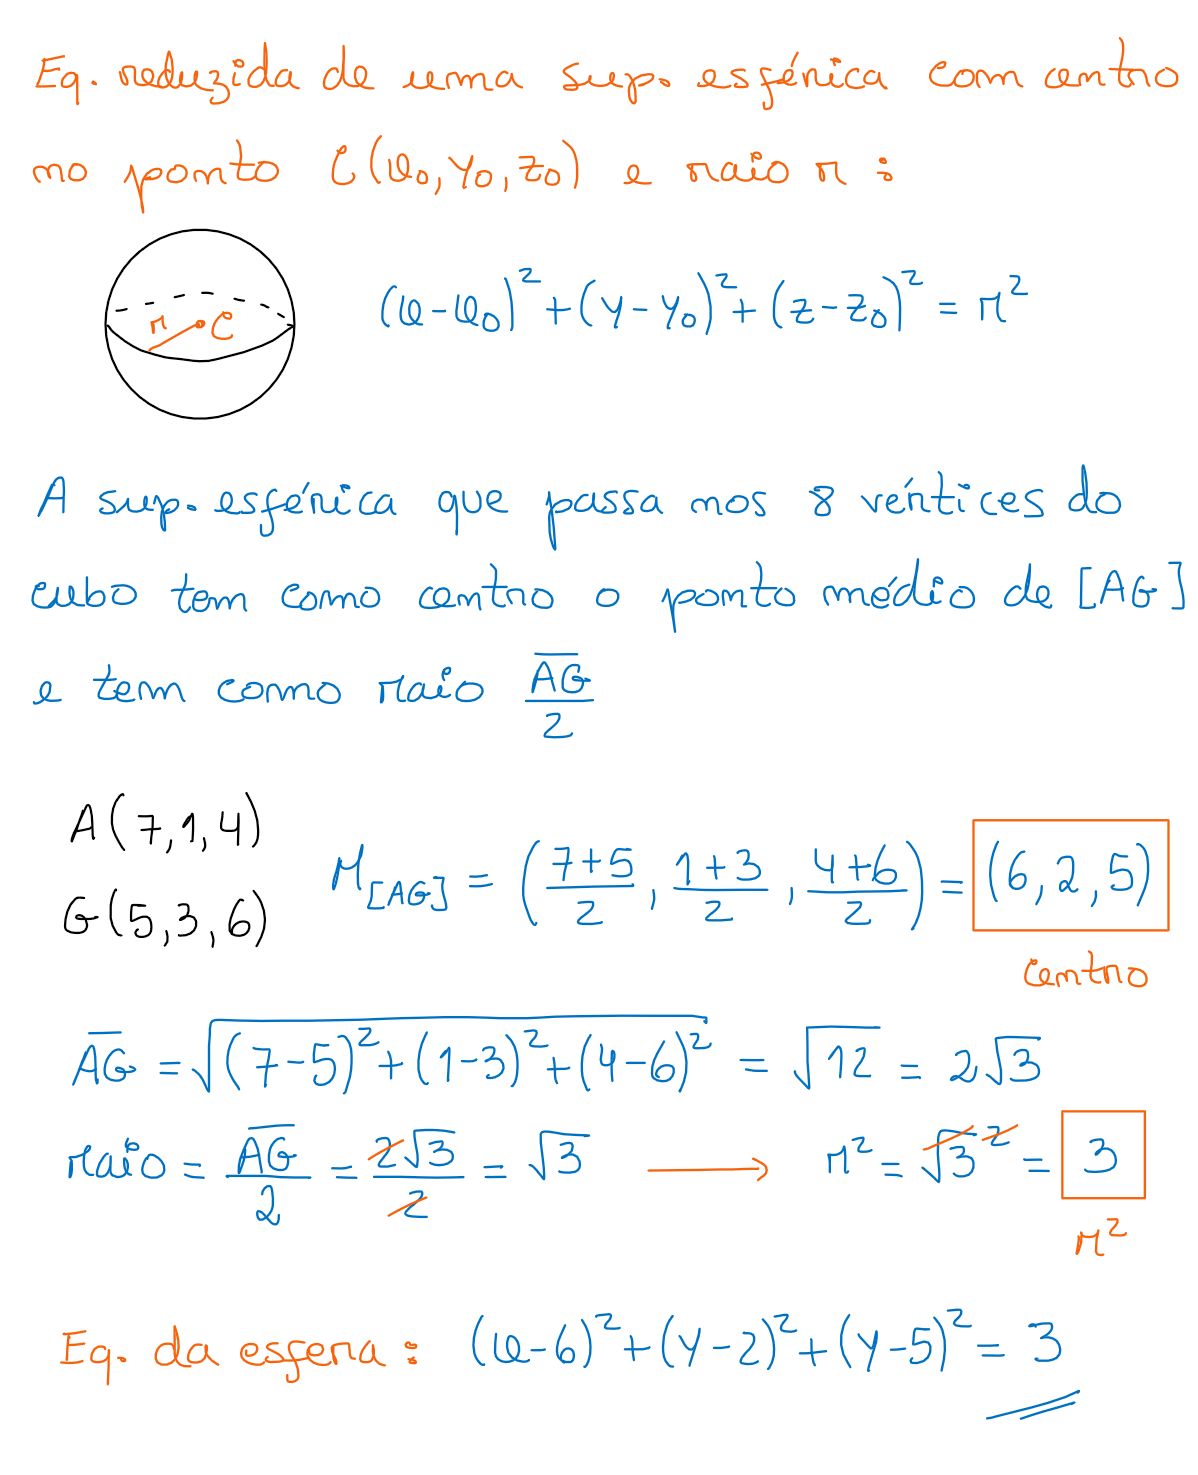 Eq. reduzida de uma sup. esférica com centro
no ponto C(x₀, y₀, z₀) e raio r :
(x-x₀)² + (y-y₀)² + (z-z₀)² = r²
r C
A sup. esférica que passa nos 8 vértices do
cubo tem como centro o ponto médio de [AG]
e tem como raio A̅G̅/2
A(7,1,4)
G(5,3,6)
M[AG] = ((7+5)/2, (1+3)/2, (4+6)/2) = (6,2,5)
centro
A̅G̅ = √((7-5)² + (1-3)² + (4-6)²) = √12 = 2√3
raio = A̅G̅/2 = 2√3/2 = √3 → r² = √3² = 3
r²
Eq. da esfera : (x-6)² + (y-2)² + (y-5)² = 3